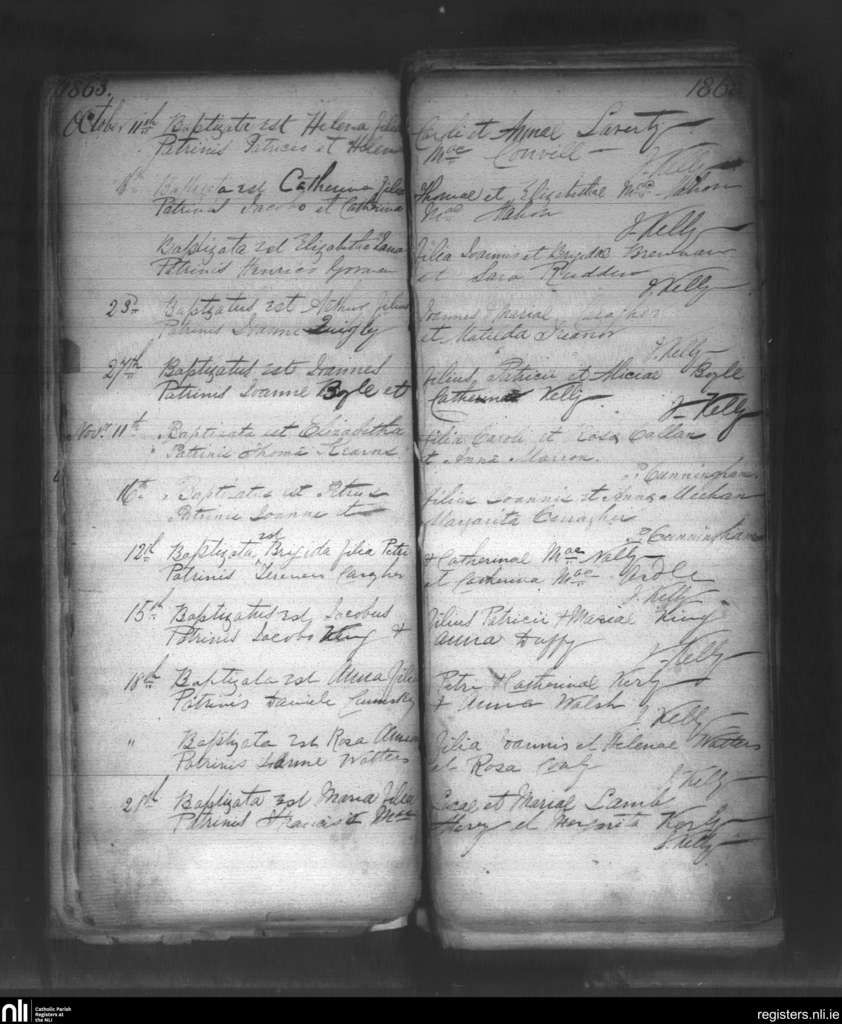 1863. 186
October 11th Baptizata est Helena filia Caroli et Annae Laverty
Patrinis Patricio et Helena Mac Conville
J Kelly
18th Baptizata est Catherina filia Thomae et Elizabethae Mac Mahon
Patrinis Jacobo et Catherina Mac Mahon
J Kelly
Baptizata est Elizabetha Jana filia Joannis et Brigidae Brennan
Patrinis Henrico Gorman et Sara Rudden
J Kelly
23rd Baptizatus est Arthur filius Joannis & Mariae
Patrinis Joanne Quigly et Matilda Treanor
J Kelly
27th Baptizatus est Joannes filius Patricii et Aliciae Boyle
Patrinis Joanne Boyle et Catherina Kelly
J Kelly
Novr 11th Baptizata est Elizabetha filia Caroli et Rosa Callan
Patrinis Thoma Kearns et Anna Marron.
P Cunningham
16th Baptizatus est Petrus filius Joannis et Anna Meehan
Patrinis Joanne et Margarita
P Cunningham
12th Baptizata est Brigida filia Petri & Catherinae Mac Nally
Patrinis Terence et Catherina Mac Ardle
J Kelly
15th Baptizatus est Jacobus filius Patricii & Mariae King
Patrinis Jacobo King & Anna Duffy
J Kelly
18th Baptizata est Anna filia Petri & Catherinae Kerly
Patrinis Daniele & Anna Walsh
J Kelly
" Baptizata est Rosa Anna filia Joannis et Helenae Watters
Patrinis Joanne Watters et Rosa
J Kelly
21st Baptizata est Maria filia Lucae et Mariae Lamb
Patrinis Francis et Margarita Kerly
J Kelly
nli Catholic Parish
Registers at
the NLI
registers.nli.ie